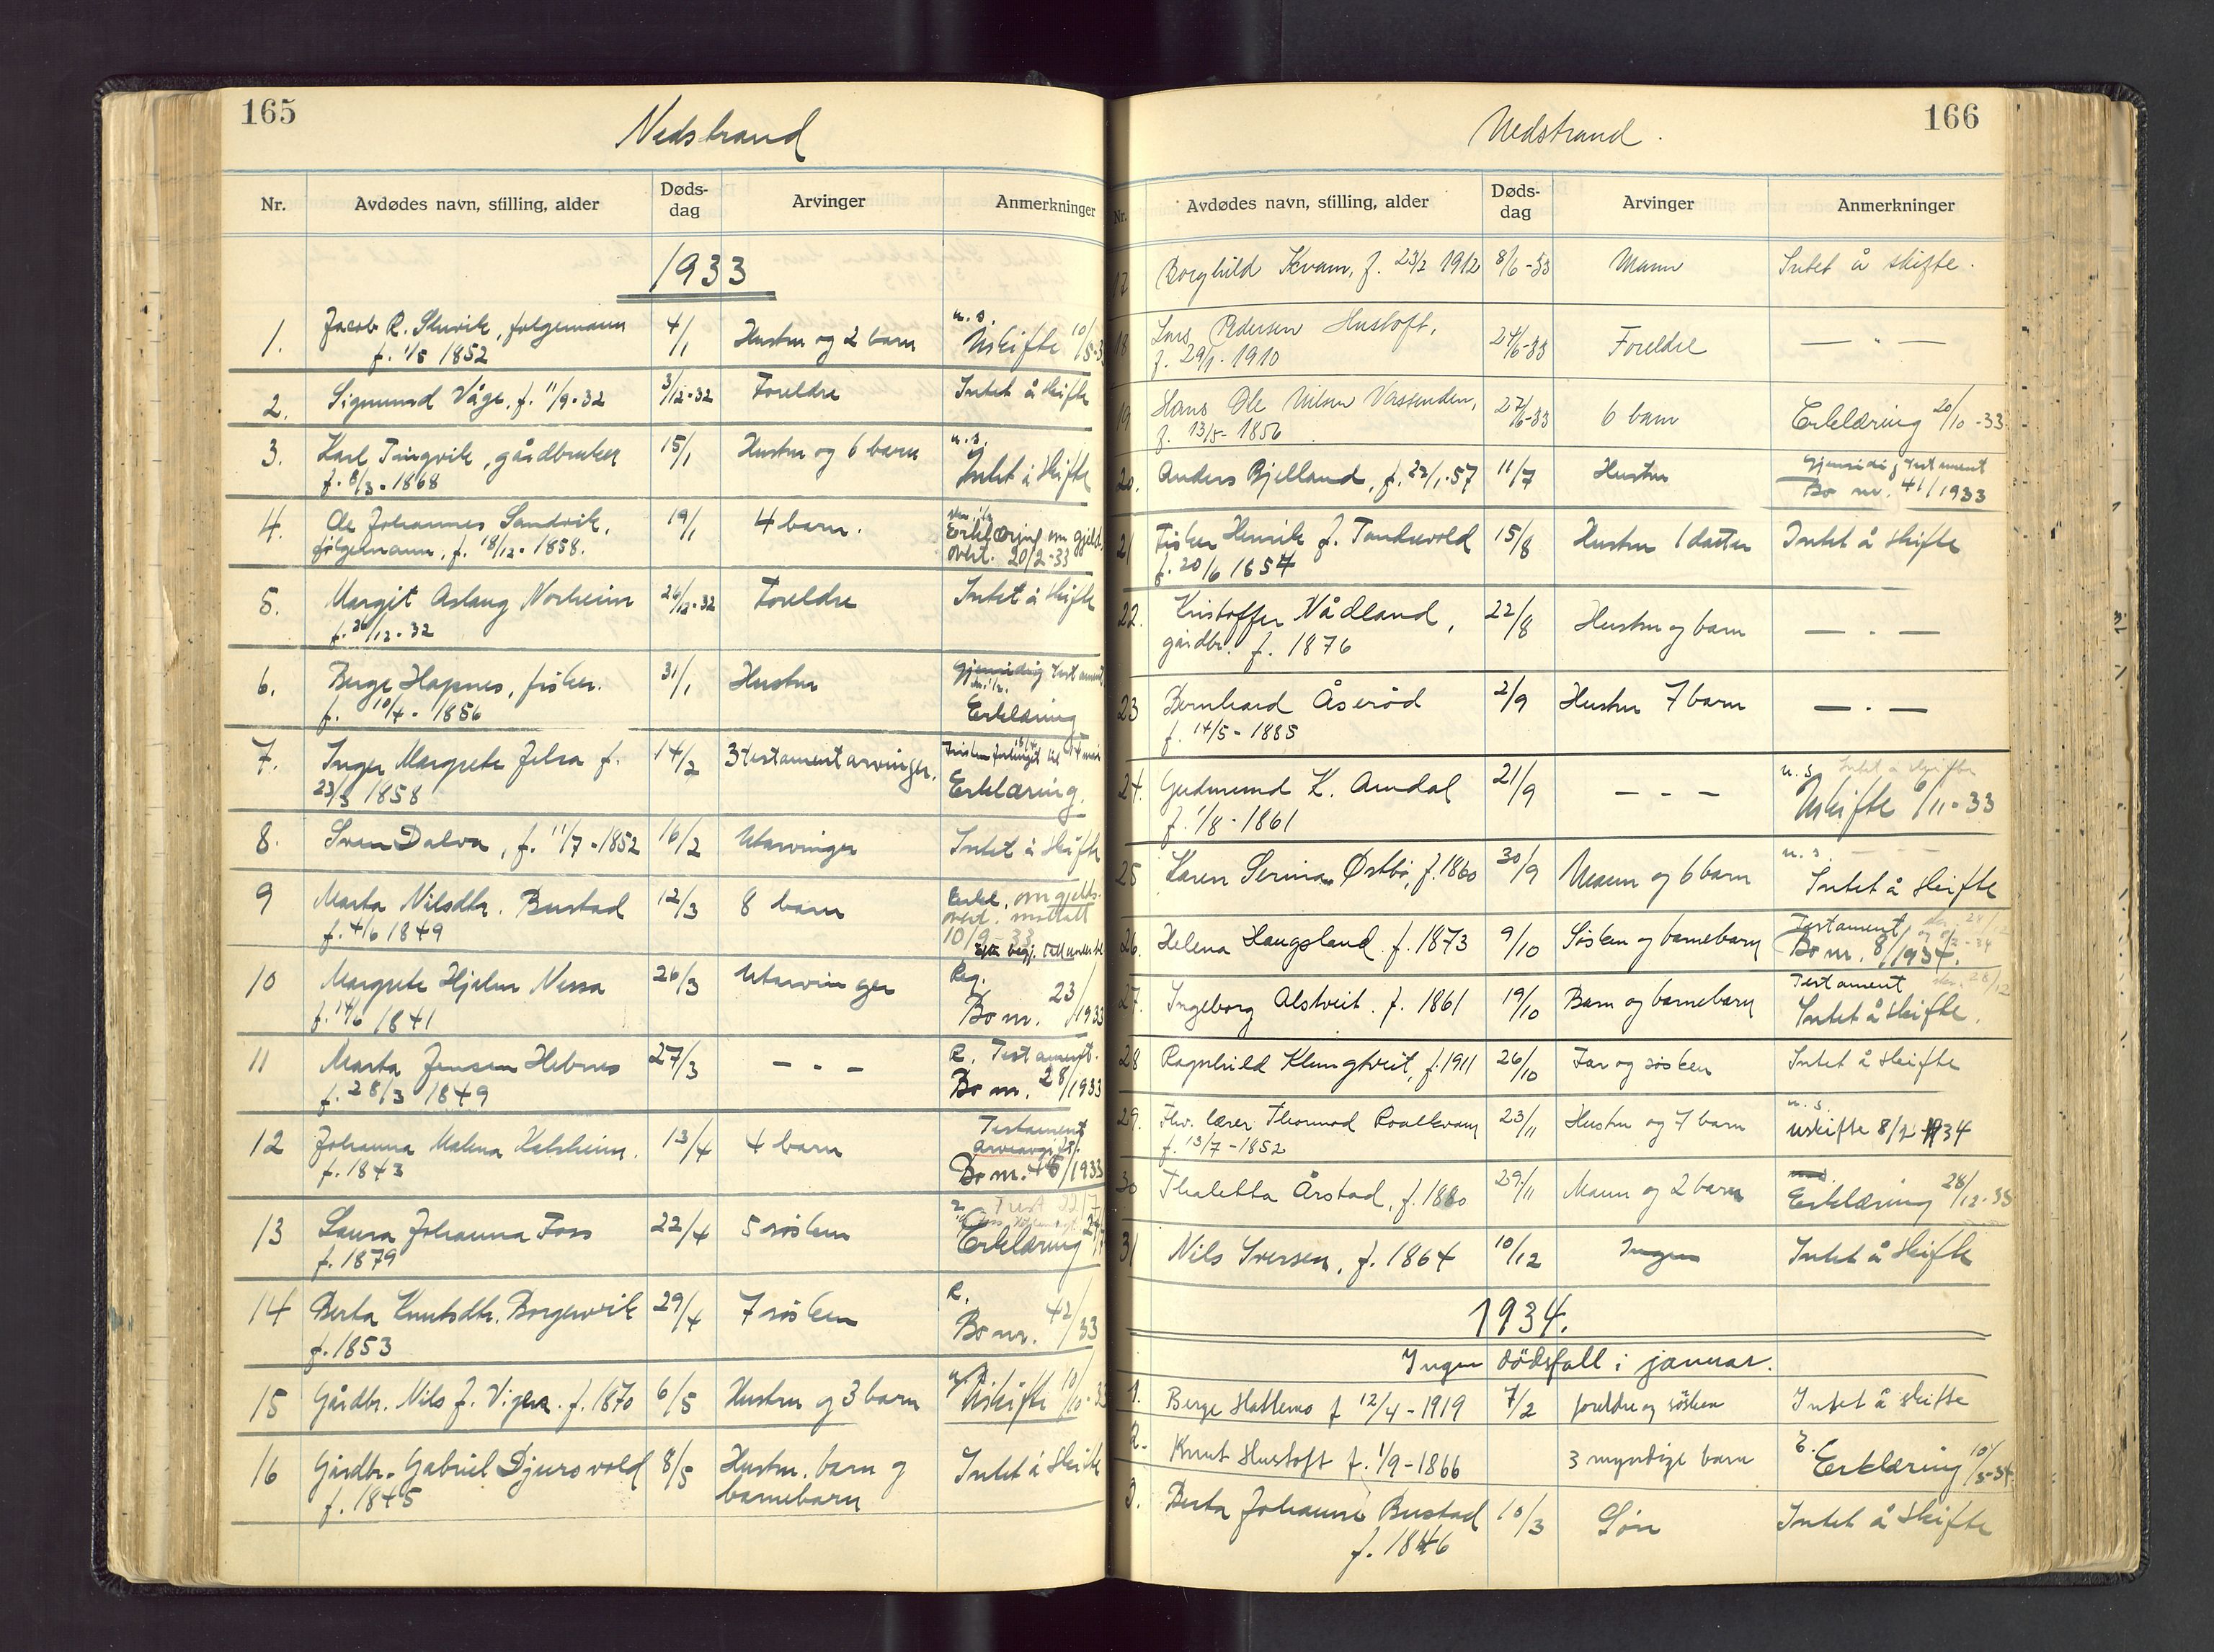 165
Nedstrand
Nr. Avdødes navn, stilling, alder Døds-dag Arvinger Anmerkninger
1933
1. Jacob R. Sluvik, følgemann 4/1 Hustru og 2 barn u.s. Uskifte 10/5-3
f. 1/5 1852
2. Sigmund Våge, f. 11/9-32 3/12-32 Foreldre Intet å skifte
3. Karl Tingvik, gårdbruker 15/1 Hustru og 6 barn u.s. Intet å skifte
f. 8/3-1868
4. Ole Johannes Sandvik, 19/1 4 barn. Erklæring om gjeld.
følgemann, f. 18/12-1858. overt. 20/2-33
5. Margit Aslaug Norheim 26/12-32 Foreldre Intet å skifte
f. 26/12-32
6. Berge Hapnes, fisker. 31/1 Hustru Gjensidig testament
f. 10/4-1856 Erklæring
7. Inger Margrete Jelsa f. 14/2 3 testamentarvinger.
23/3 1858 Erklæring.
8. Sven Dalva, f. 11/7-1852 16/2 Utarvinger Intet å skifte
9 Marta Nilsdtr. Bustad 12/3 8 barn Erkl. om gjelds-
f. 4/6 1849 overt. mottatt
10/9-33
10 Margrete Hjelm Nessa 26/3 Utarvinger Reg.
f. 14/6 1841 Bo nr. 23/1933
11 Marta Jensen Hebnes 27/3 - . - R. Testament.
f. 28/3 1849 Bo nr. 28/1933
12 Johanna Malena Halsheim. 13/4 4 barn Testament
f. 1843 arveavgift.
Bo nr. 45/1933
13 Laura Johanna Foss 22/4 5 søsken Erklæring
f. 1879
14 Berta Knutsdtr. Borgenvik 29/4 7 søsken R.
f. 1853 Bo nr. 42/33
15 Gårdbr. Nils J. Vigea. f. 1870 6/5 Hustru og 3 barn Uskifte 10/10-33
16 Gårdbr. Gabriel Djursvold 8/5 Hustru, barn og Intet å skifte
f. 1845 barnebarn
166
Nedstrand.
Nr. Avdødes navn, stilling, alder Døds-dag Arvinger Anmerkninger
17 Borghild Kvam, f. 23/2 1912 8/6-33 Mann Intet å skifte.
18 Lars Pedersen Hustoft, 24/6-33 Foreldre — " —
f. 29/1-1910
19 Hans Ole Nilsen Vassenden, 27/6-33 6 barn Erklæring 20/10-33
f. 13/5-1856
20. Anders Bjelland, f. 22/1-57 11/7 Hustru Gjensidig testament
Bo nr. 41/1933
21 Fisker Henrik J. Tandrevold 15/8 Hustru 1 datter Intet å skifte
f. 20/6 1854
22. Kristoffer Nådland, 22/8 Hustru og barn — . —
gårdbr. f. 1876
23 Bernhard Åserød 2/9 Hustru 7 barn — . —
f. 14/5-1885
24. Gudmund K. Amdal 21/9 - - - u.s. Intet å skifte
f. 1/8-1861 Uskifte 6/11-33
25 Karen Serina Østbø, f. 1860 30/9 Mann og 6 barn u.s.
Intet å skifte
26. Helena Haugsland. f. 1873 9/10 Søsken og barnebarn Testament
Bo nr. 8/1934.
27. Ingeborg Alstveit. f. 1861 19/10 Barn og barnebarn Testament
Intet å skifte.
28 Ragnhild Klungtveit, f. 1911 26/10 Far og søsken Intet å skifte
29. Fhv. lærer Thormod Roalkvam 23/11 Hustru og 7 barn u.s.
f. 13/7-1852 uskifte 8/2-1934
30 Thaletta Årstad, f. 1880 29/11 Mann og 2 barn Erklæring 28/12-33
31 Nils Iversen, f. 1864 10/12 Ingen Intet å skifte
1934.
Ingen dödsfall i januar.
1. Berge Hattenes f 12/4-1919 7/2 foreldre og søsken Intet å skifte
2. Knut Hustoft f. 1/9-1866 3 myndige barn Erklæring 10/3-34
3. Berta Johanne Bustad 10/3 Sønn Intet å skifte
f. 1846